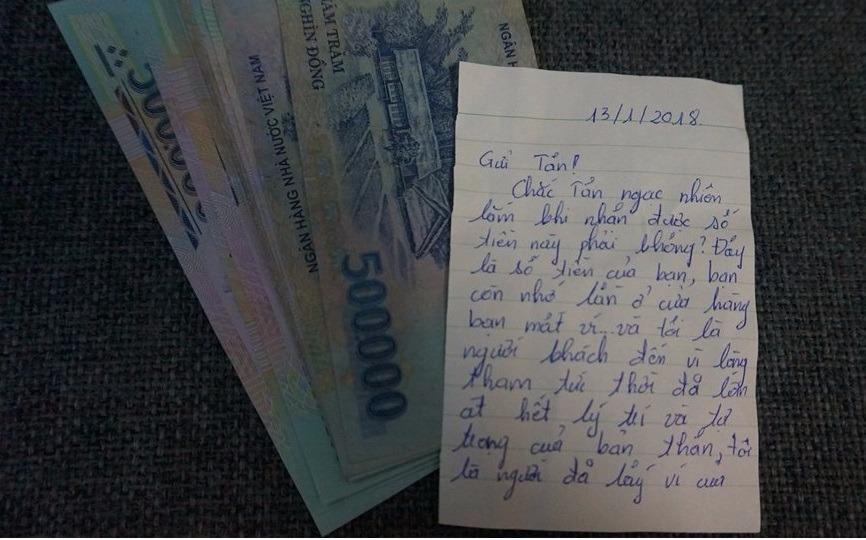 500.000
NGÂN HÀNG NHÀ NƯỚC VIỆT NAM
NĂM TRĂM
NGHÌN ĐỒNG
500.000
NGÂN H
13/1/2018.
Gửi Tấn!
Chắc Tấn ngạc nhiên
lắm khi nhận được số
tiền này phải không? Đây
là số tiền của bạn, bạn
còn nhớ lần ở cửa hàng
bạn mất ví.. và tôi là
người khách đến vì lòng
tham tức thời đã lấn
át hết lý trí và tự
trọng của bản thân, tôi
là người đã lấy ví của